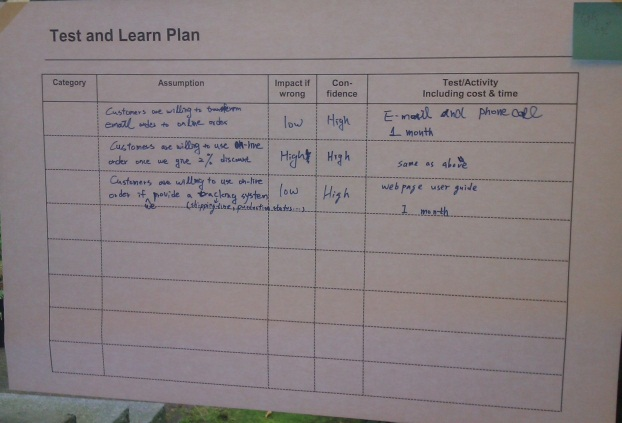 Test and Learn Plan
Category Assumption Impact if wrong Con-fidence Test/Activity Including cost & time
Customers are willing to transform
email order to online order
low High
E-mail and phone call
1 month
Customers are willing to use on-line
order once we give 2% discount
High High
same as above
Customers are willing to use on-line
order if we provide a tracking system
(shipping time, production status...)
low High
web page user guide
1 month